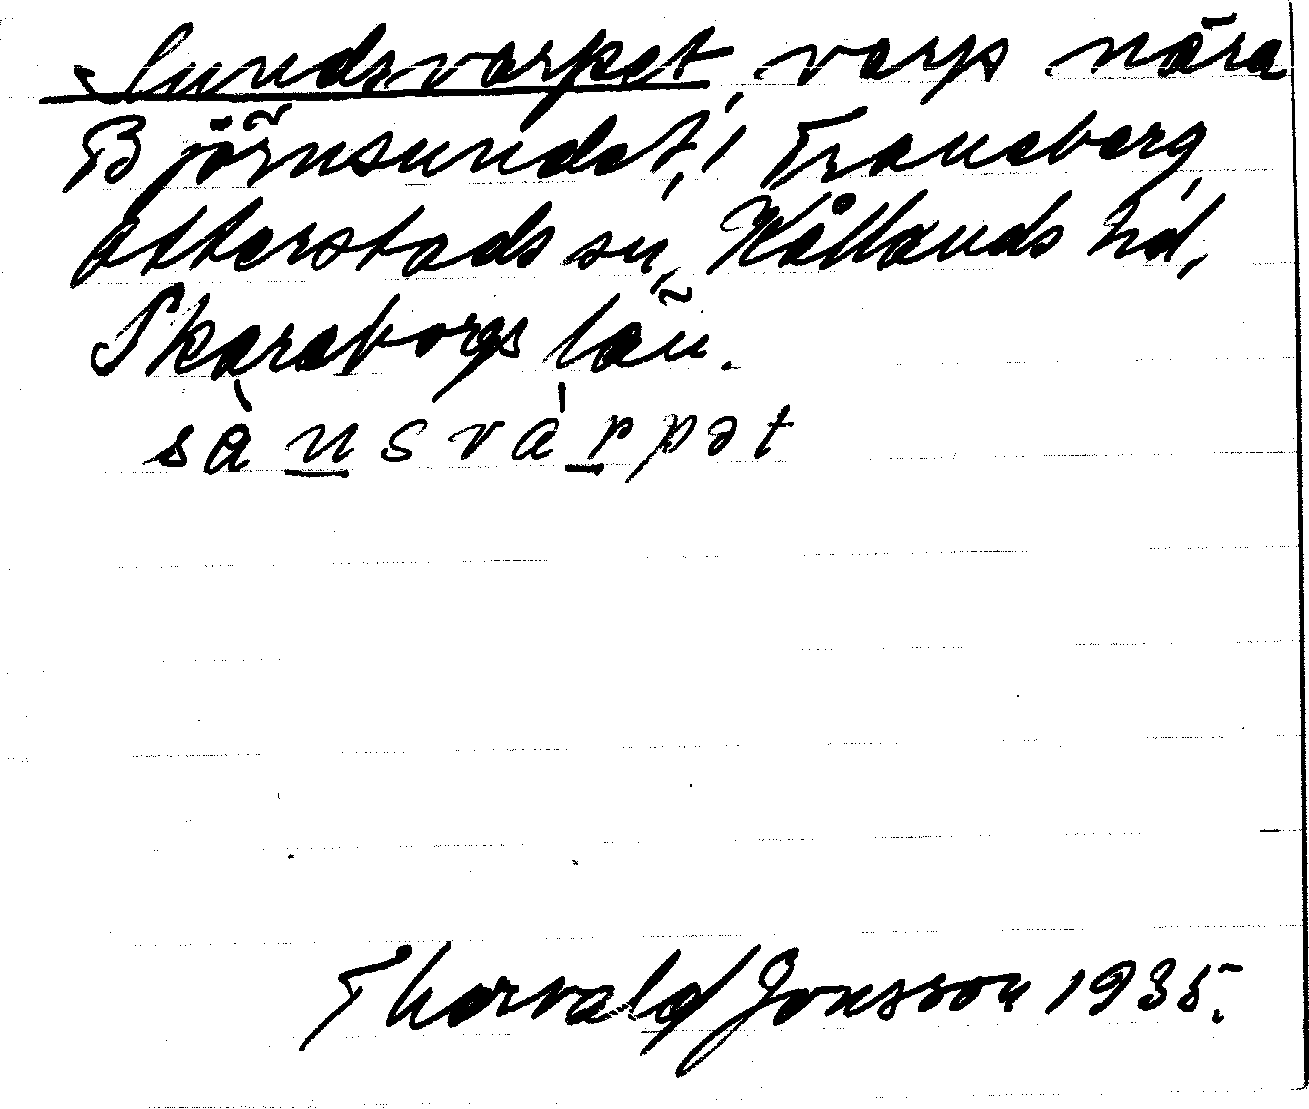 Sundsvarpet, varp nära
Björnsundet, i Traneberg,
Otterstads sn, Kållands hd,
Skaraborgs län.
sànsvárpət
Thorvald Jonsson 1935.